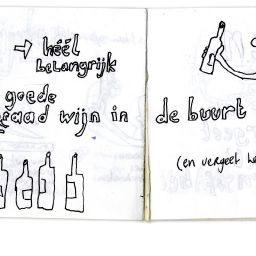 → héél
belangrijk
goede
raad wijn in de buurt
(en vergeet he